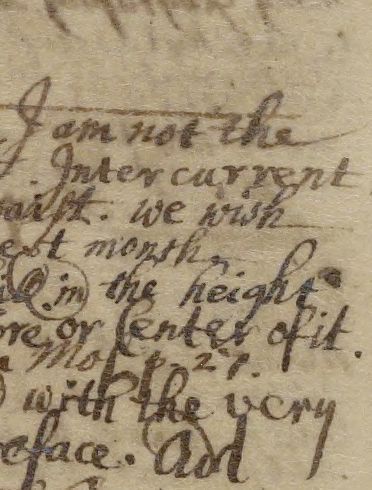 I am not the
Intercurrent
. we wish
month.
in the height
or Center of it.
27.
with the very
eface. Add